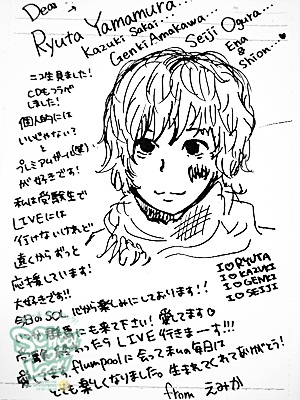 Dear
Ryuta Yamamura...
Kazuki Sakai...
Genki Amakawa...
Seiji Ogura...
Ena
&
Shion...
ニコ生見ました!
CDもフラゲ
しました!
個人的には
いいじゃない?
と
プレミアムガール(笑)
が好きです!
私は受験生で
LIVEには
行けないけれど
遠くからずっと
応援しています!
大好きです!!
今日のSOL 心から楽しみにしております!!
群馬にも来て下さい!愛してます
終わったらLIVE行きまーす!!!
愛してます。flumpoolに会って私の毎日は
とても楽しくなりました。生まれてくれてありがとう!
I♡RYUTA
I♡KAZUKI
I♡GENKI
I♡SEIJI
from えみか